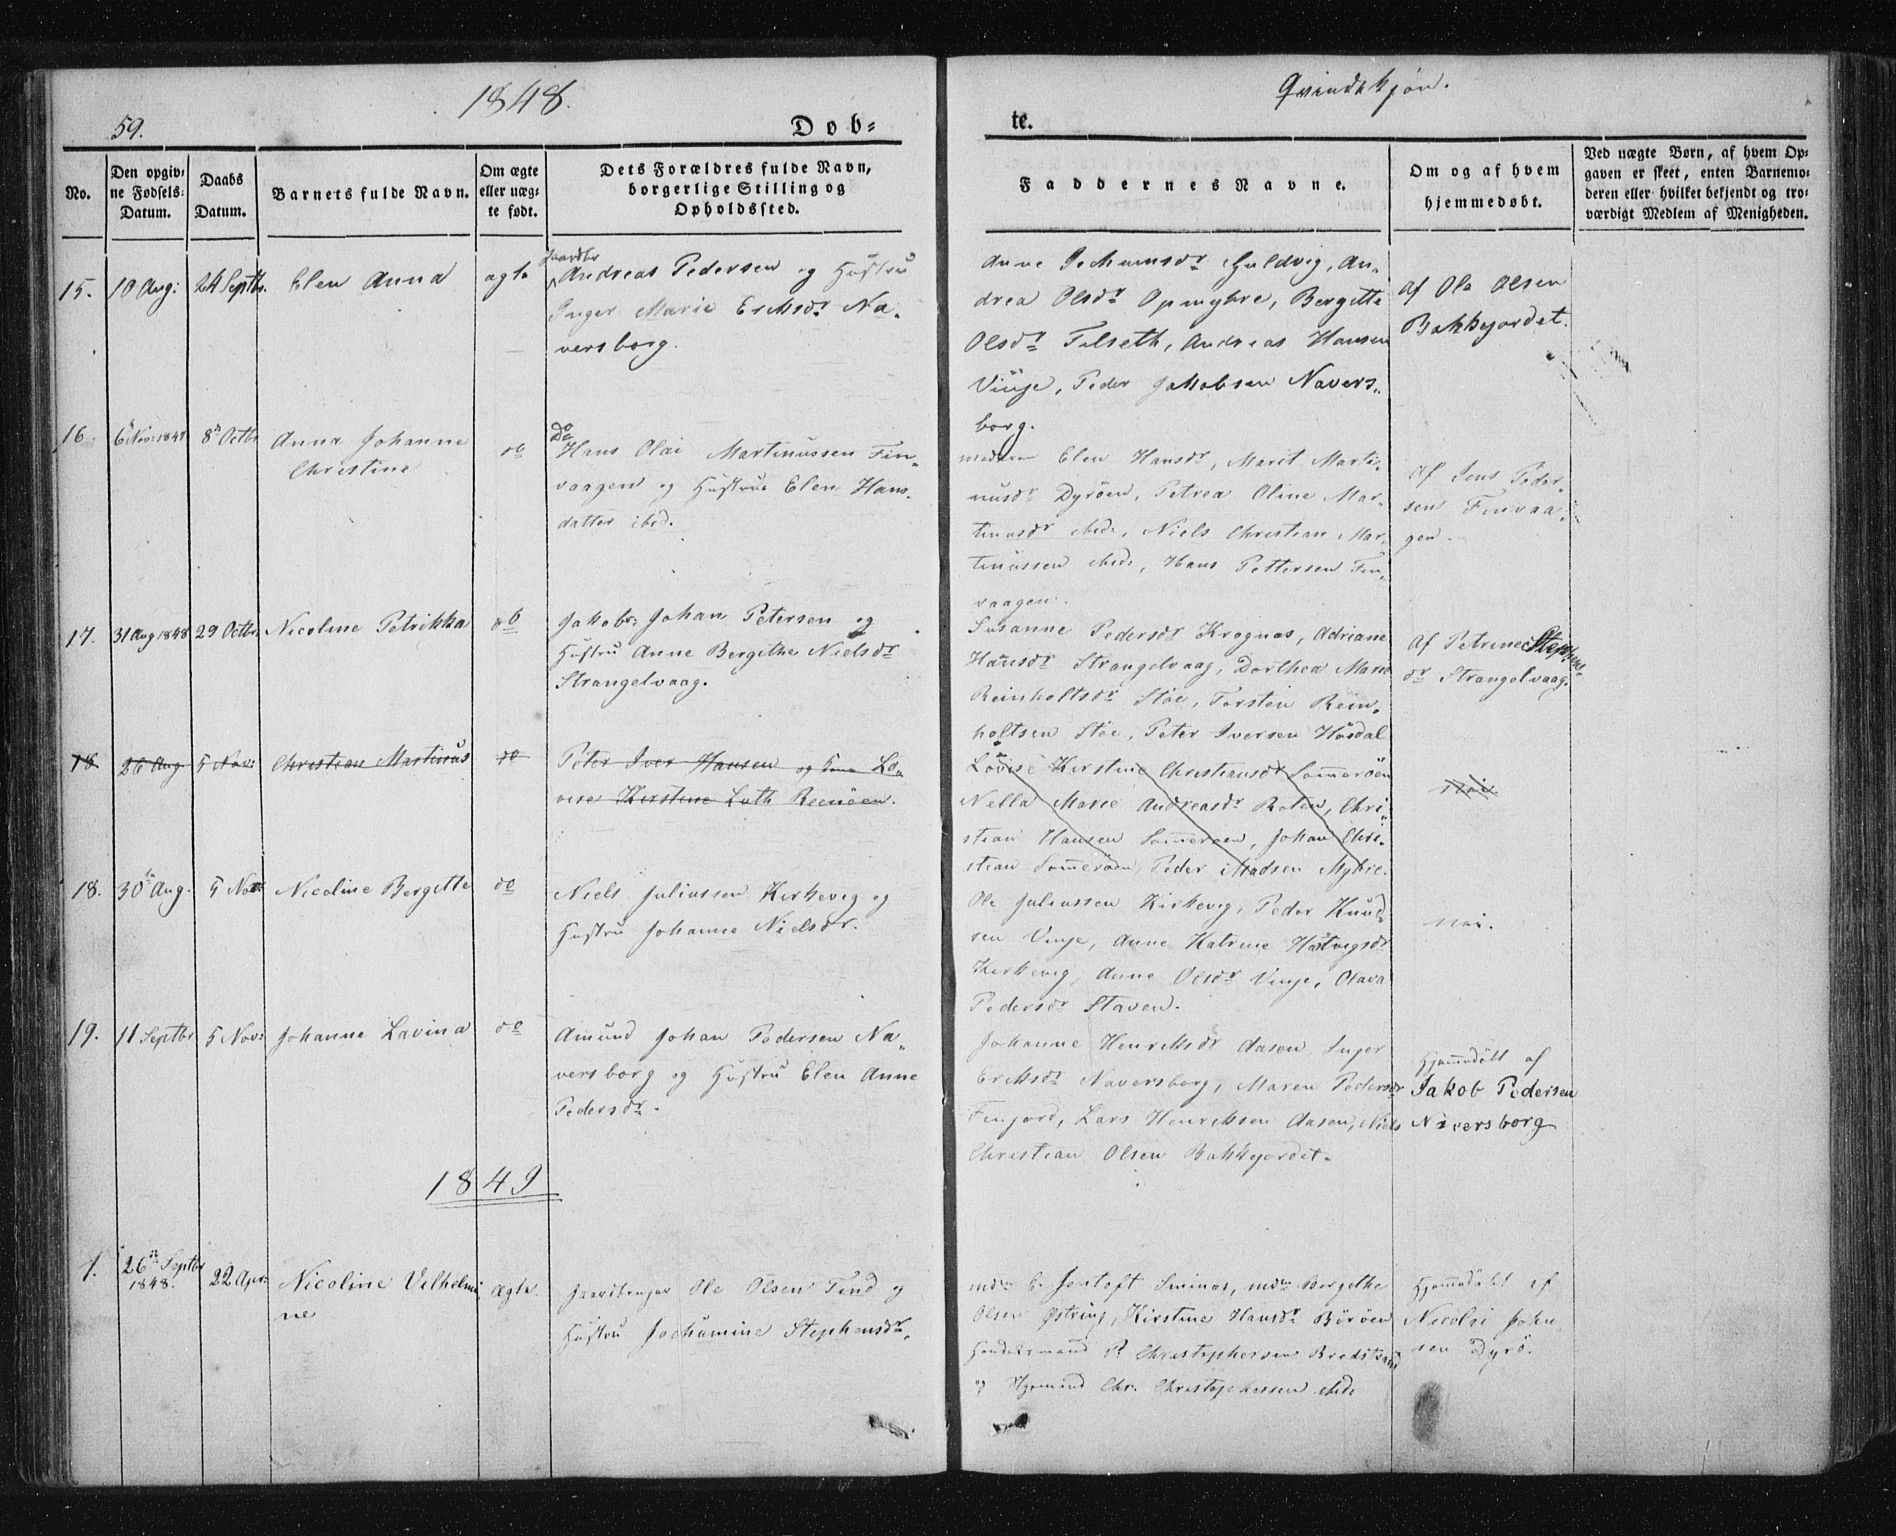 1848.
Qvindekjön.
59.
Döb=
te.
No.
Den opgiv=
ne Födsels=
Datum.
Daabs
Datum.
Barnets fulde Navn.
Om ægte
eller uæg=
te födt.
Dets Forældres fulde Navn,
borgerlige Stilling og
Opholdssted.
Faddernes Navne.
Om og af hvem
hjemmedöbt.
Ved uægte Börn, af hvem Op=
gaven er skeet, enten Barnemo=
deren eller hvilket bekjendt og tro=
værdigt Medlem af Menigheden.
15.
10 Aug:
24 Septbr.
Elen Anna
ægte
Gaardbr
Andreas Pedersen og Hustru
Inger Marie Ericksdr Na,
versborg.
Anne Jochumsdr Guldvig, An,
drea Olsdr Opmyhre, Bergitte
Olsdr Tilseth, Andreas Hansen
Vinje, Peder Jakobsen Navers,
borg.
af Ole Olsen
Bakkejordet.
16.
6 Nov: 1847
8de Octbr
Anna Johanne
Christine
do
Do
Hans Olai Martinussen Fin,
vaagen og Hustrue Elen Hans,
datter ibid.
moderen Elen Hansdr, Marit Marti,
nusdr Dyröen, Petrea Oline Mar,
tinusdr ibid, Niels Christian Mar,
tinussen ibid, Hans Pettersen Fin,
vaagen.
af Jens Peder,
sen Finvaa,
gen.
17.
31 Aug 1848
29 Octbr
Nicoline Petrikka
do
Jakob Johan Petersen og
Hustru Anne Bergithe Nielsdr
Strangelvaag.
Susanne Pedersdr Krognæs, Adriane
Hansdr Strangelvaag, Dorthea Marie
Reinholtsdr Stöe, Torsten Rein,
holtsen Stöe, Peter Iversen Hösdal
af Petrine Stephens,
dr Strangelvaag.
18
26 Aug
5 Nov:
Christian Martinus
do
Peter Iver Hansen og Lo,
vise Kirstine Luth Reinöen.
Lovise Kirstine Christiansdr Sommeröen
Nella Marie Andreasdr Boten, Chri,
stian Hansen Sommeröen, Johan Chri,
stian Sommeröen, Peder Madsen Myhre.
nei
18.
30te Aug.
5 Nov
Nicoline Bergitte
do
Niels Juliussen Kirkevig og
Hustru Johanne Nielsdr.
Ole Juliussen Kirkevig, Peder Knud,
sen Vinje, Anne Katrine Hartvigsdr
Kirkevig, Anne Olsdr Vinje, Olava
Pedersdr Staven.
nei.
19.
11 Septbr
5 Nov:
Johanne Lavina
do
Amund Johan Pedersen Na,
versborg og Hustru Elen Anne
Pedersdr.
Johanne Henriksdr Aasen, Inger
Ericksdr Naversborg, Maren Pedersdr
Finjord, Lars Henriksen Aasen, Niels
Christian Olsen Bakkejordet.
Hjemmedöbt af
Jakob Pedersen
Naversborg
1849
1.
26de Septbr
1848.
22 Apr:
Nicoline Vilhelmi
ne
ægte.
Gaardbruger Ole Olsen Tind og
Hustru Jochumine Stephensdr.
Mdm E. Jentoft, mdm Bergithe
Olsen, Kirstine Hansdr Böröen
Handelsmand P. Christophersen Bredstrand
og Chr. Christophersen ibid
Hjemmedöbt af
Nicolai John
sen Dyrö.